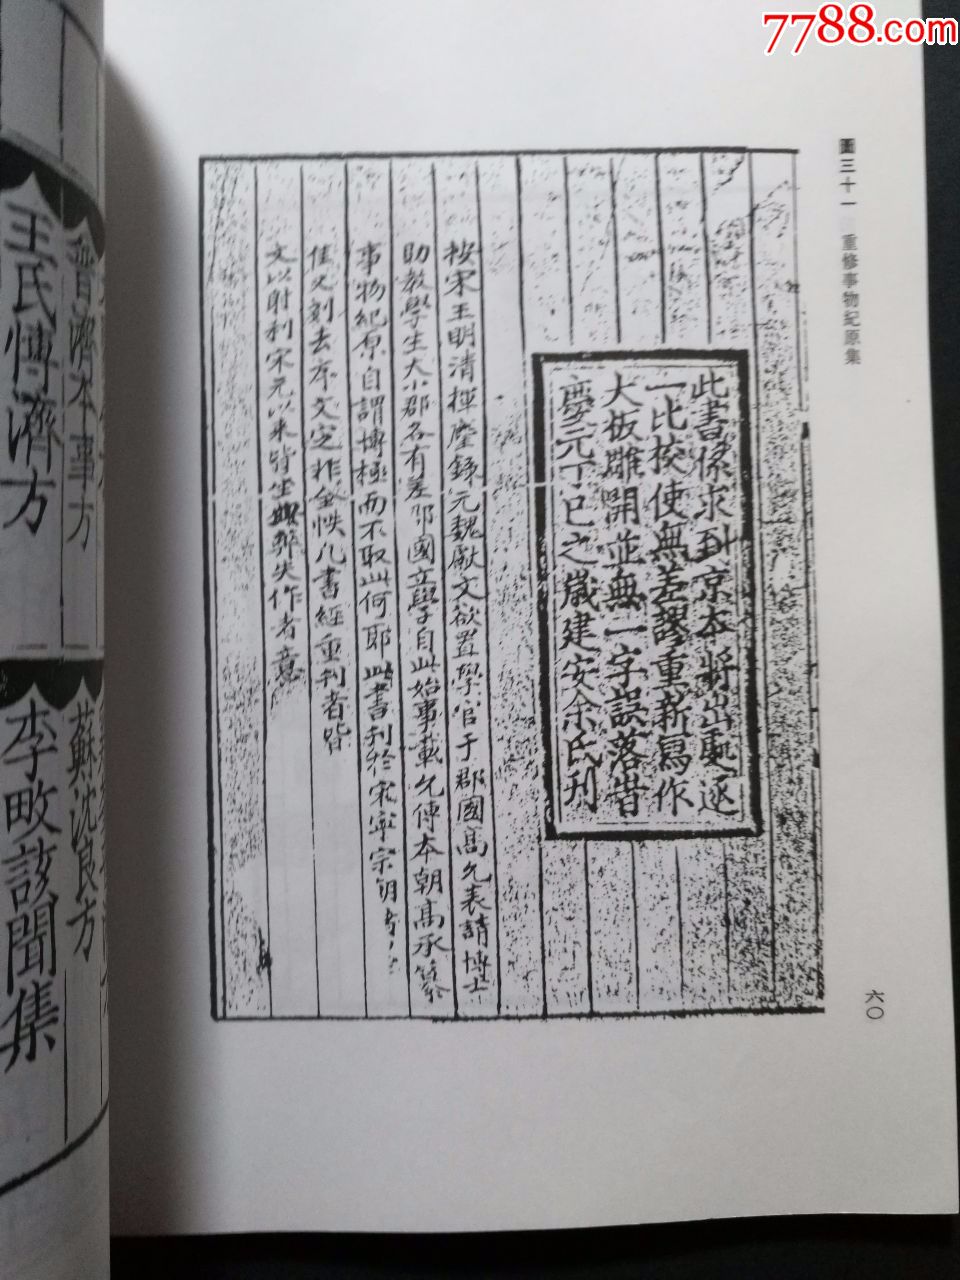 7788.com
圖三十一 重修事物紀原集
六〇
此書係求到京本將出處逐
一比校使無差謬重新寫作
大板雕開並無一字誤落昔
慶元丁巳之歲建安余氏刊
按宋王明清揮麈錄元魏獻文欲置學官于郡國高允表請博士
助教學生大小郡各有差郡國立學自此始事載允傳本朝高承纂
事物紀原自謂博極而不取此何耶此書刊於宋寧宗朝
佳又刻去序文定非全帙凡書經重刊者皆
文以射利宋元以來皆坐此弊失作者意
普濟本事方
王氏博濟方
蘇沈良方
李畋該聞集